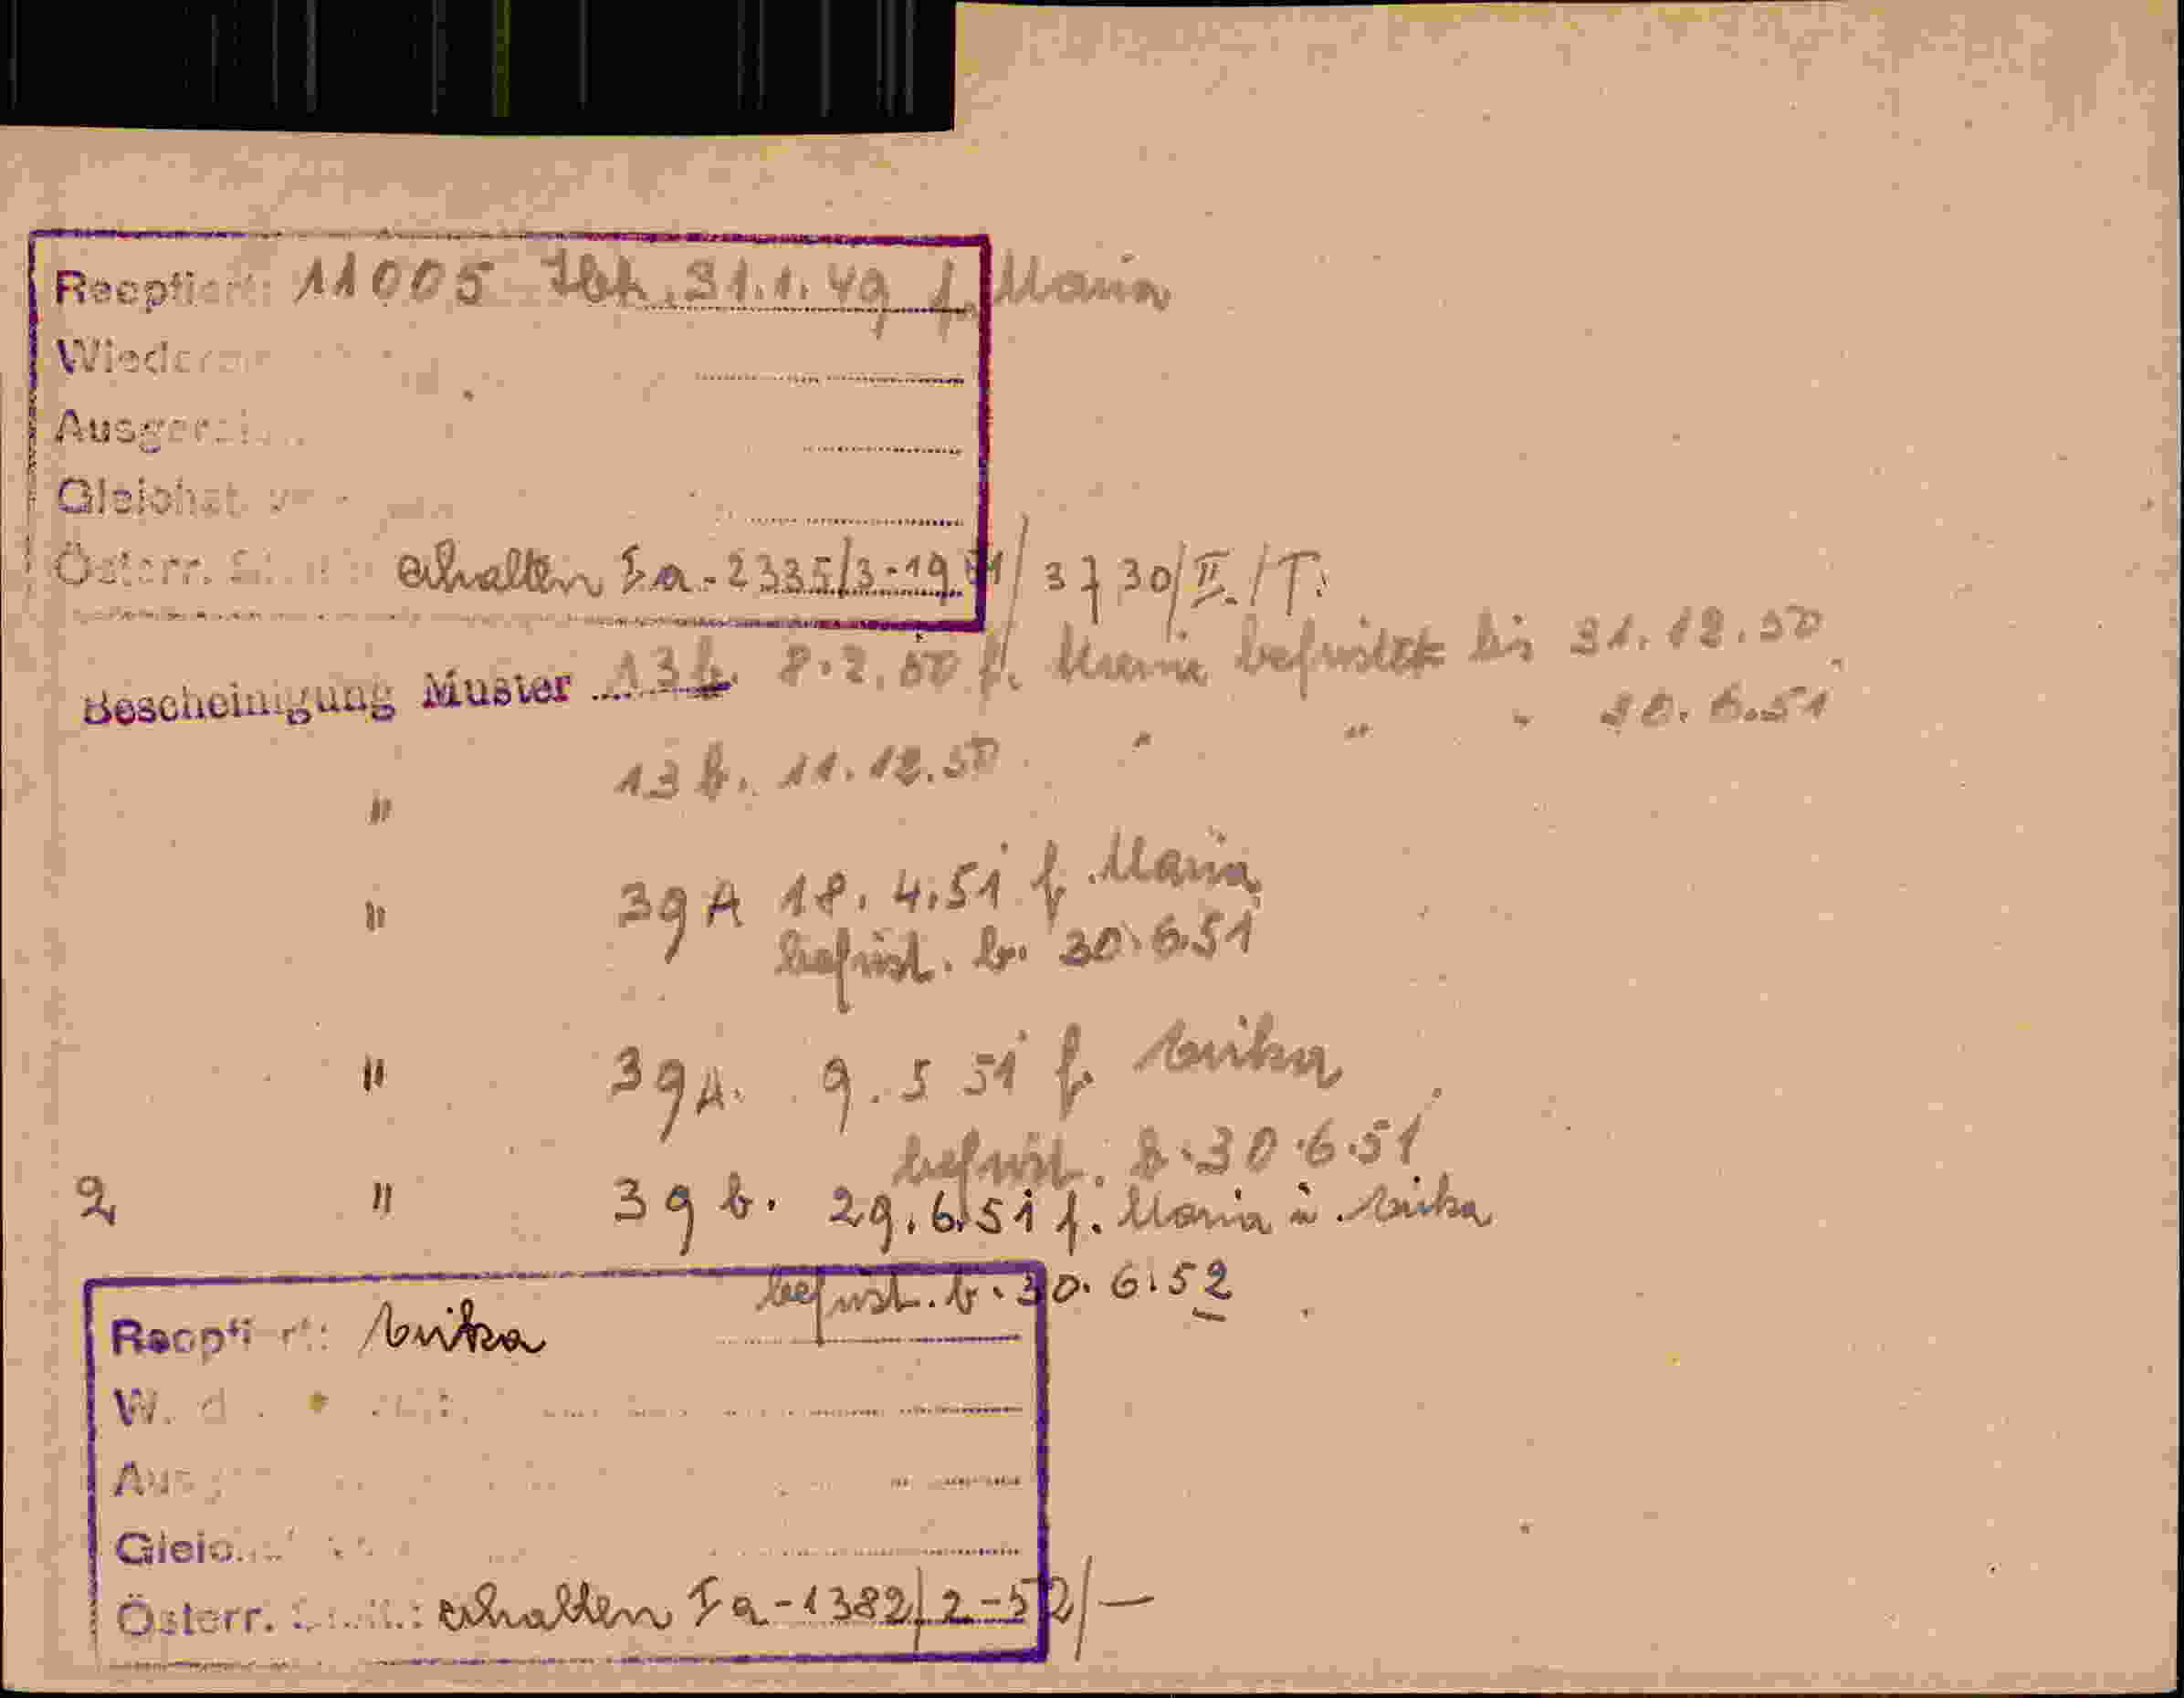 Reoptiert: 11005 Ibk. 31.1.49 f. Maria
Wieder
Ausger
Gleichst
Österr. erhalten Ia-2335/3-1951/3730/II./T.
Bescheinigung Muster 13b. 8.2.50 f. Maria befristet bis 31.12.50.
" 13b. 11.12.50 " " " 30.6.51
" 39A 18.4.51 f. Maria
befrist. b. 30.6.51
" 39A. 9.5 51 f. Erika
befrist. b. 30.6.51
2 " 39b. 29.6.51 f. Maria u. Erika
befrist. b. 30.6.52
Reoptiert: Erika
W
Aus
Gleic
Österr. erhalten Ia-1382/2-52/—